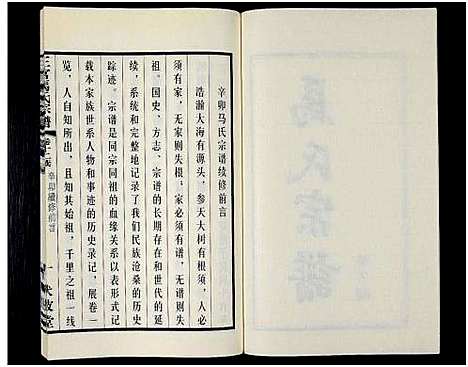 辛卯马氏宗谱续修前言
浩瀚大海有源头，参天大树有根须，人必
须有家，无家则失根；家必须有谱，无谱则失
祖。国史、方志、宗谱的长期存在和世代的延
续，系统和完整地记录了我们民族沧桑的历史
踪迹。宗谱是同宗同祖的血缘关系以表形式记
载本家族世系人物和事迹的历史录记，展卷一
览，人自知所出，且知其始祖，千里之祖一线
辛卯续修前言
一